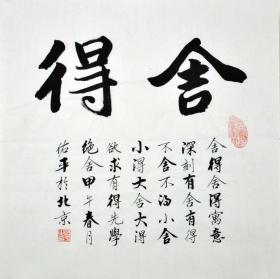 舍得
舍得舍得寓意
深刻有舍有得
不舍不得小舍
小得大舍大得
欲求有得先学
施舍甲午春月
佑平於北京